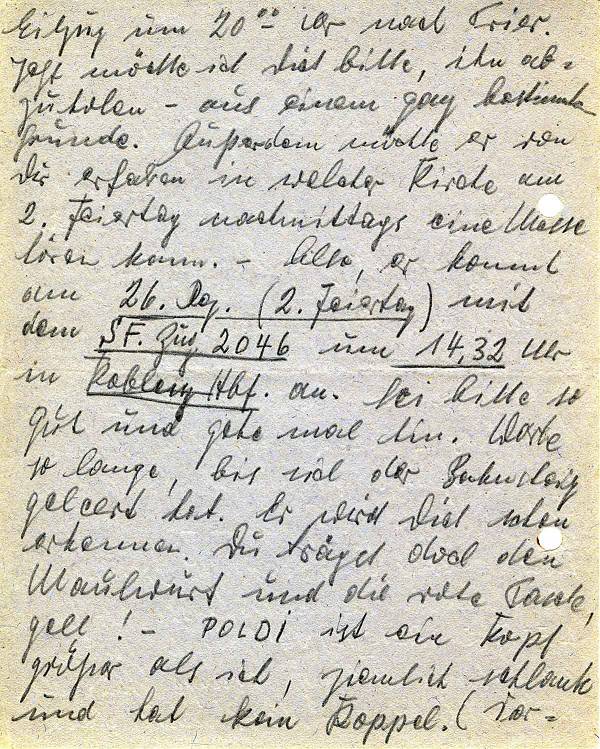 Eilzug um 20⁰⁰ Uhr nach Trier.
Jetzt möchte ich Dich bitte, ihn ab-
zuholen – aus einem ganz bestimmten
Grunde. Außerdem möchte er von
Dir erfahren in welcher Kirche am
2. Feiertag nachmittags eine Messe
hören kann. – Also, er kommt
am 26. Dez. (2. Feiertag) mit
dem SF. Zug 2046 um 14,32 Uhr
in Koblenz Hbf. an. Sei bitte so
gut und gehe mal hin. Warte
so lange, bis sich der Bahnsteig
geleert hat. Er wird Dich schon
erkennen. Du trägst doch den
Maulwurf und die rote Tasche,
gell! – POLDI ist ein Kopf
größer als ich, ziemlich schlank
und hat kein Koppel. (Vor-